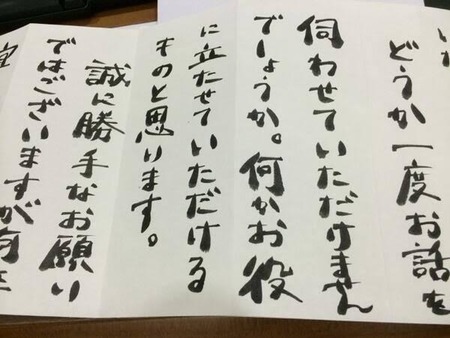 どうか一度お話を
伺わせていただけません
でしょうか。何かお役
に立たせていただける
ものと思います。
誠に勝手なお願い
ではございますが何